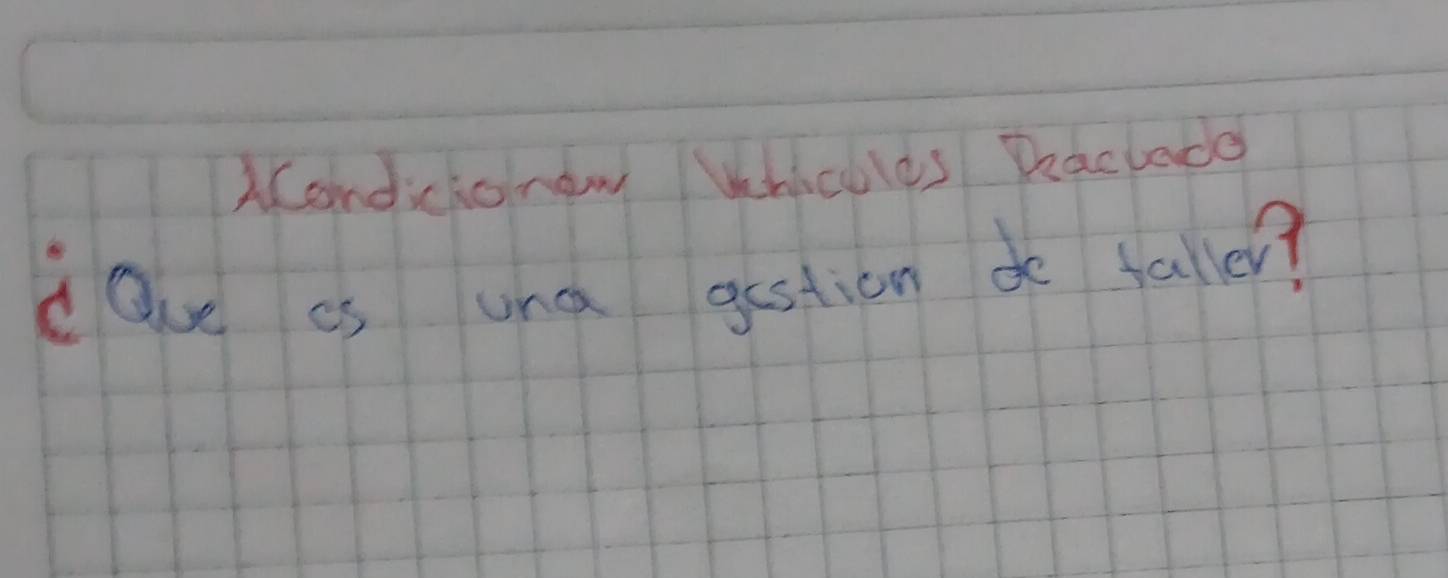 Acondicionar Vehiculos Deacuado
¿Que es una gestion de taller?